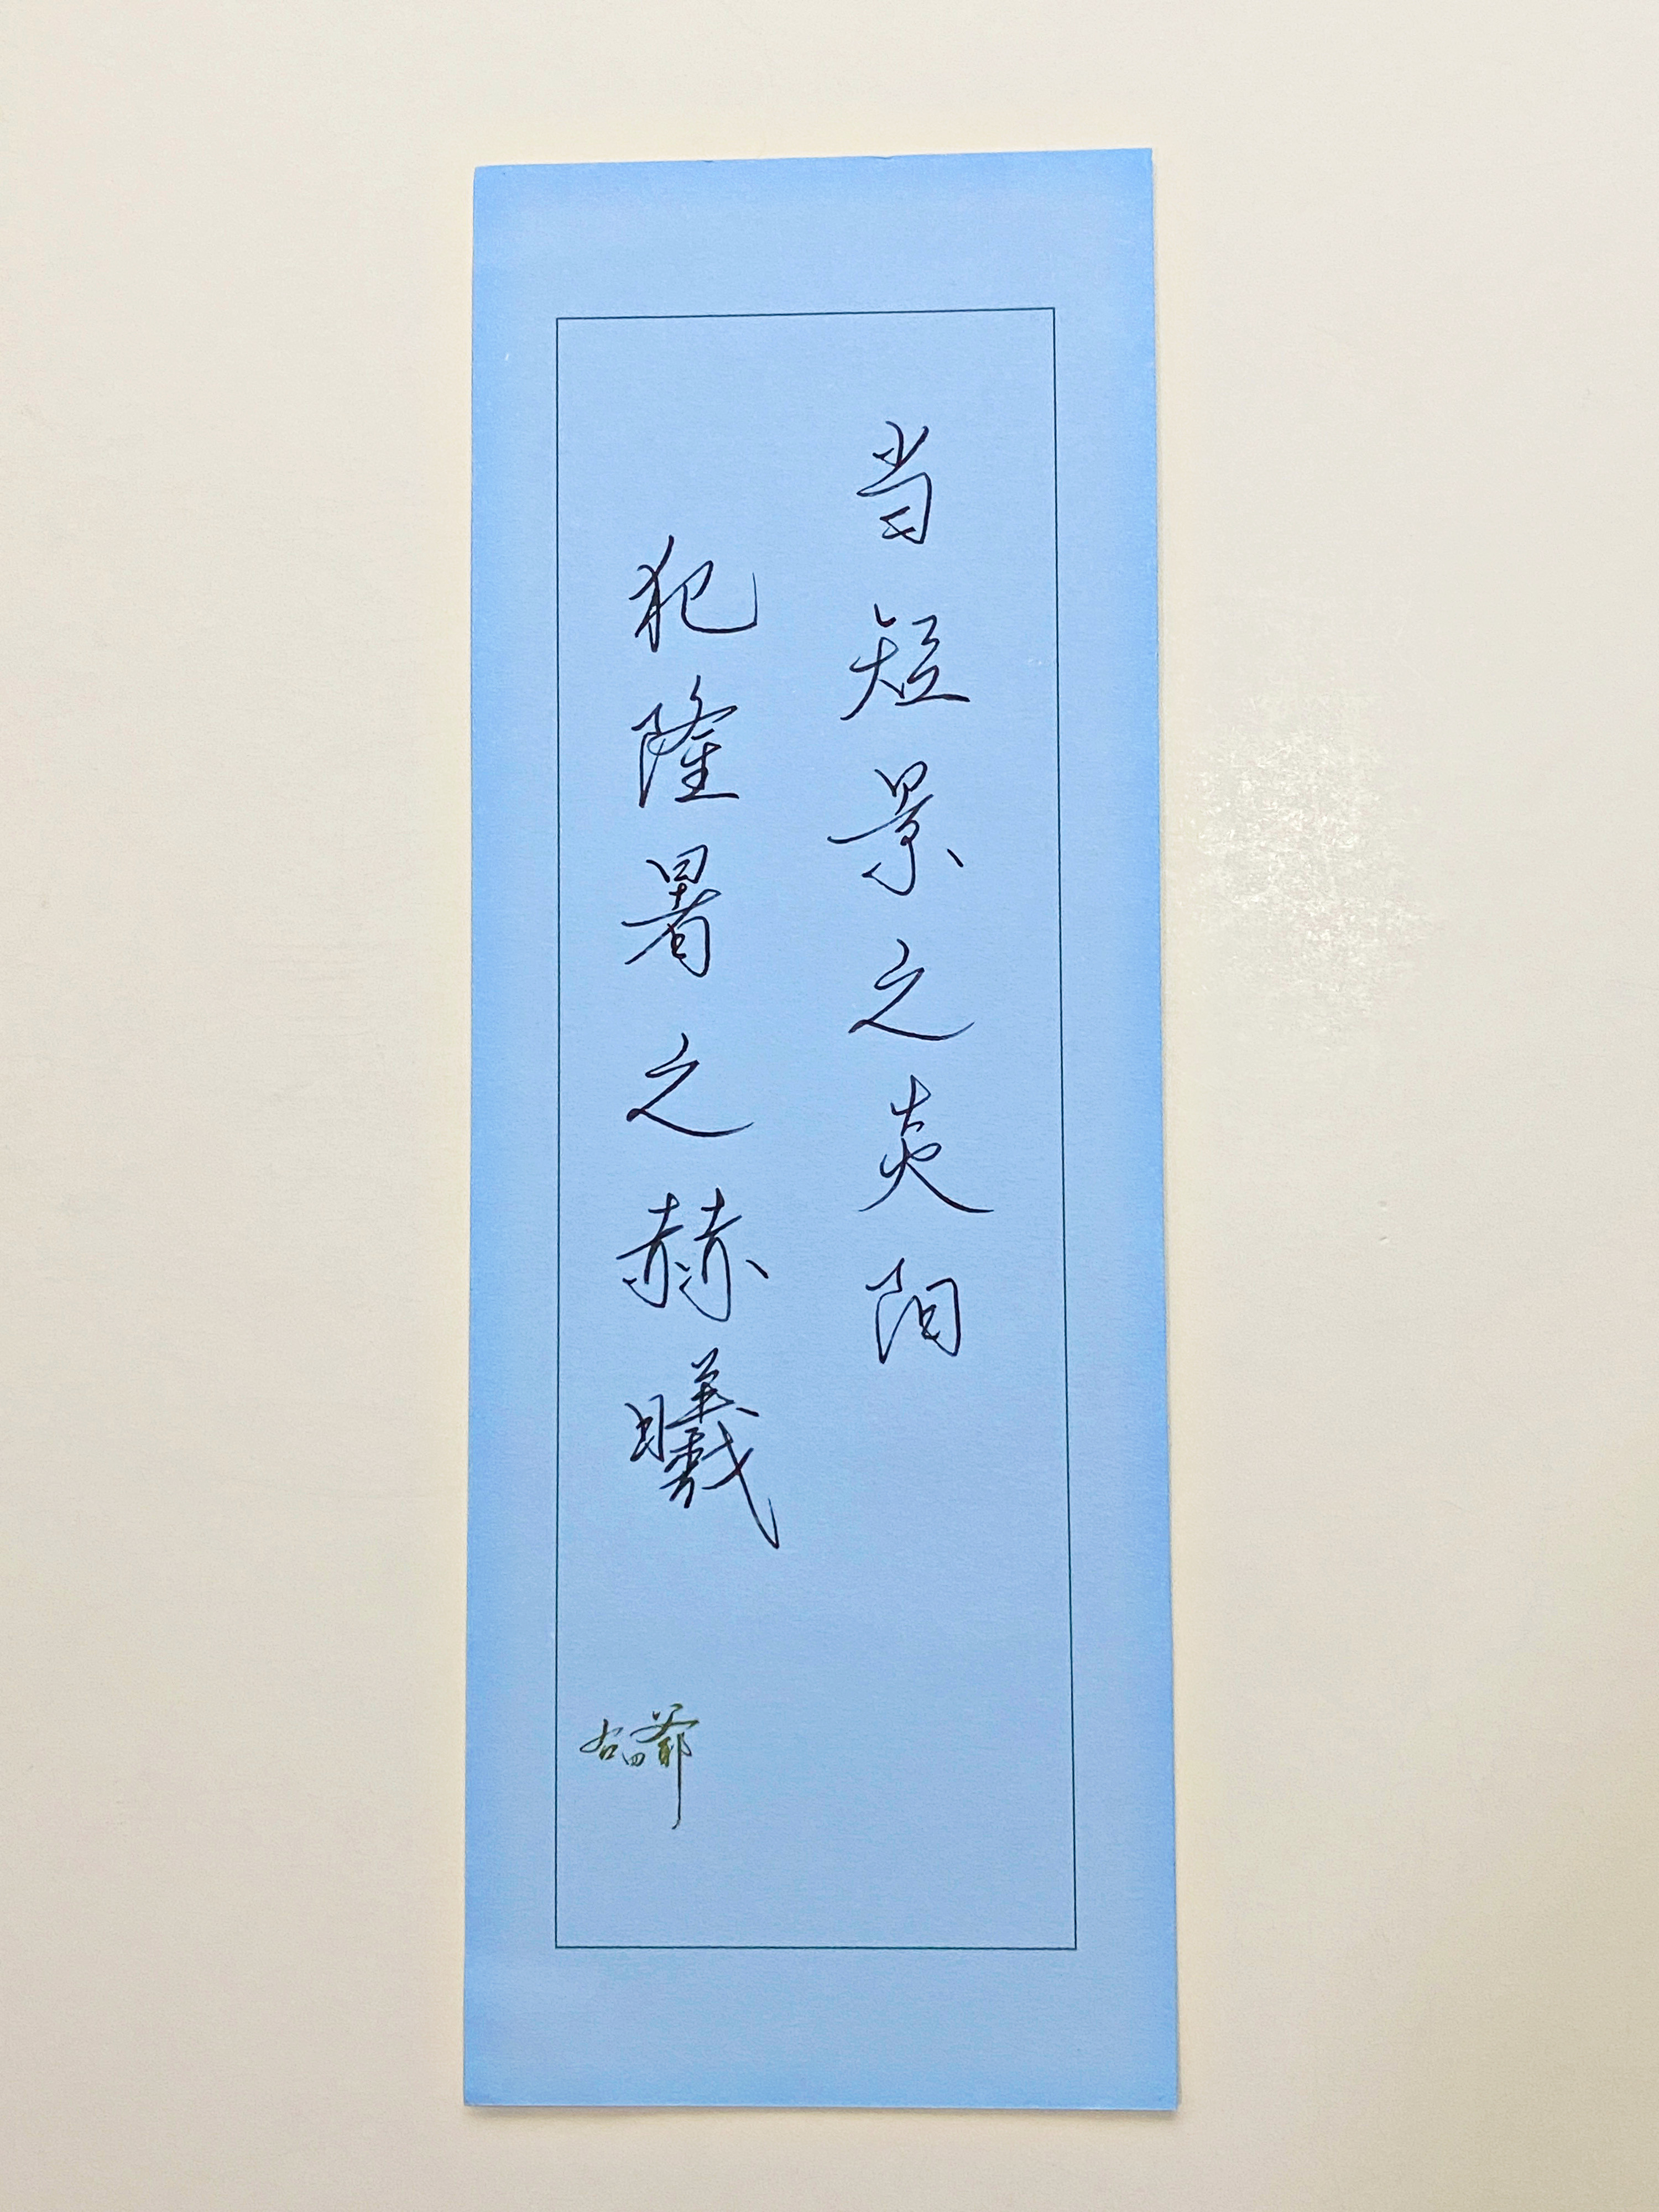 当短景之炎阳
犯隆暑之赫曦
右四爷